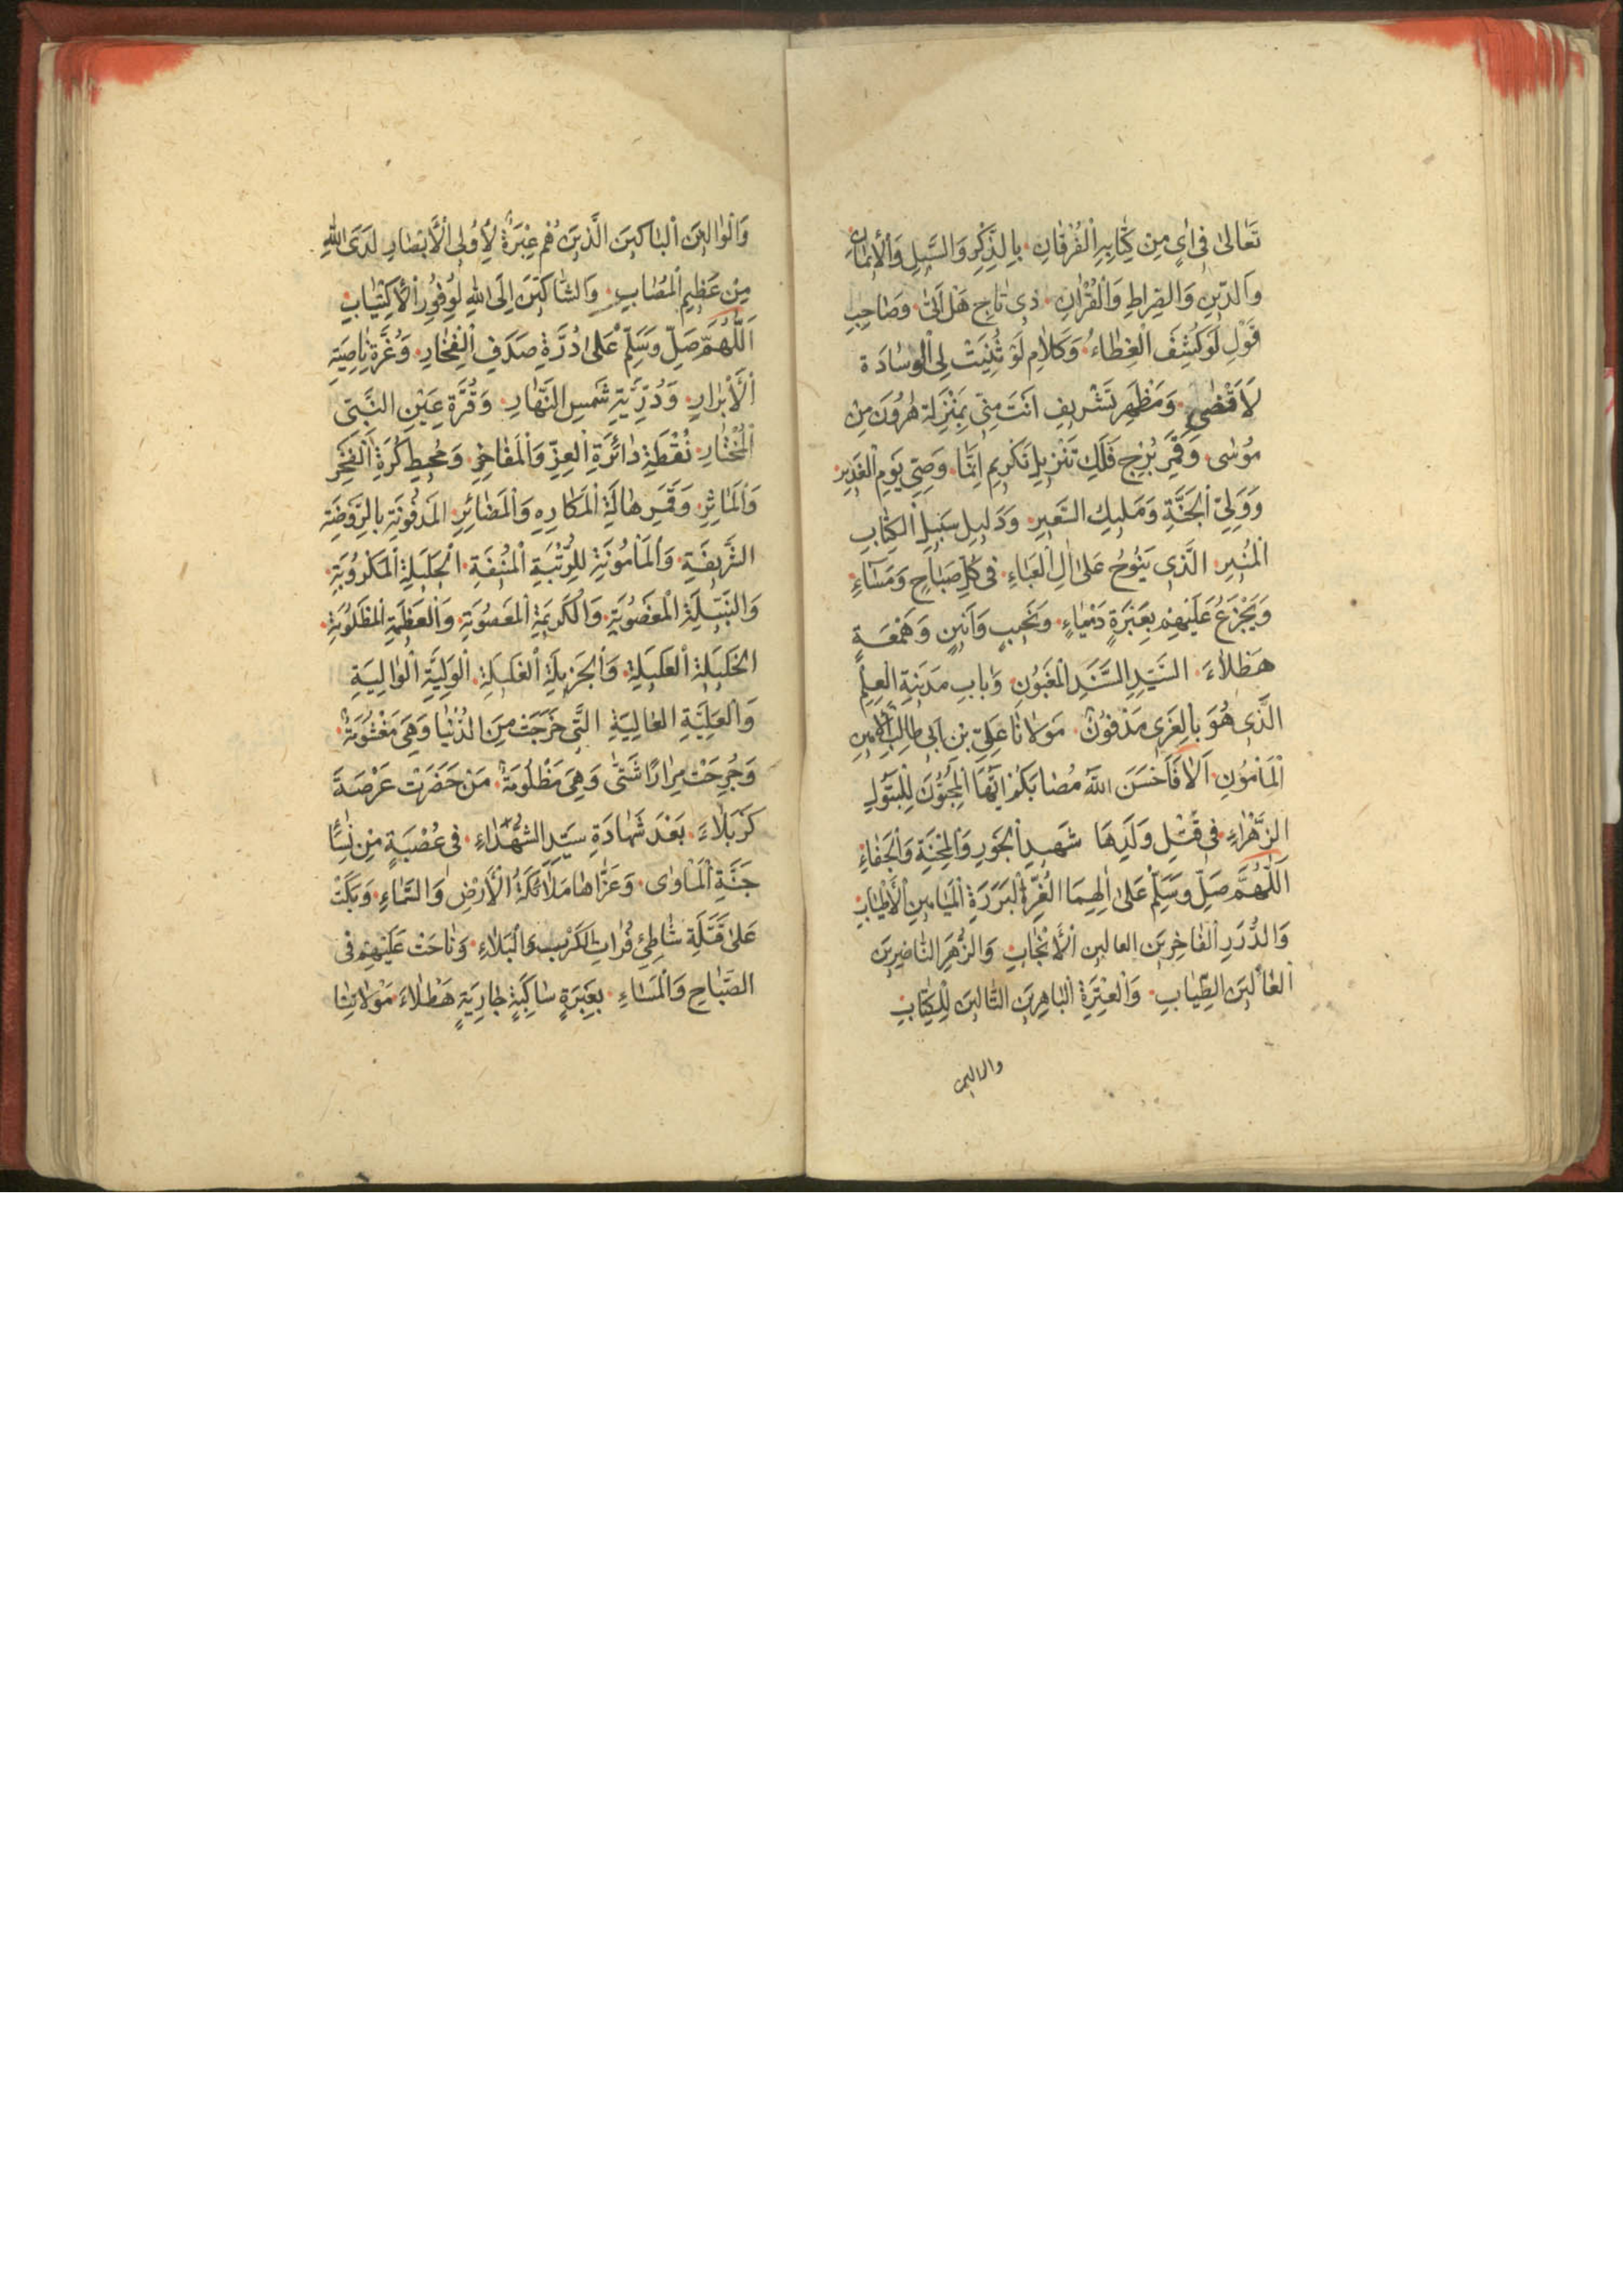 تَعَالىٰ فِي اٰيٍ مِنْ كِتَابِهِ الْفُرْقَانِ بِالذِّكْرِ وَالسَّبِيلِ وَالْأَيْمَانِ
وَالدِّينِ وَالصِّرَاطِ وَالْقُرْاٰنِ ذِي تَاجِ هَلْ اَتىٰ وَصَاحِبِ
قَوْلِ لَوْ كُشِفَ الْغِطَاءُ وَكَلَامِ لَوْ ثُنِيَتْ لِي الْوِسَادَة
لَاَقْضِي وَمَظْهَرِ تَشْرِيفِ اَنْتَ مِنِّي بِمَنْزِلَةِ هٰرُونَ مِنْ
مُوسٰى وَقَمَرِ بُرْجِ فَلَكِ تَنْزِيلِ تَكْرِيمِ اِنَّمَا وَصِيِّ يَوْمِ الْغَدِيرِ
وَوَلِيِّ الْجَنَّةِ وَمَلِيكِ السَّعِيرِ وَدَلِيلِ سَبِيلِ الْكِتَابِ
الْمُنِيرِ الَّذِي يَنُوحُ عَلىٰ اٰلِ الْعَبَاءِ فِي كُلِّ صَبَاحٍ وَمَسَاءٍ
وَيَجْزَعُ عَلَيْهِمْ بِعَبْرَةٍ دَيْمَاءٍ وَنَحِيبٍ وَاَنِينٍ وَهَمْعَةٍ
هَطْلَاءَ السَّيِّدِ السَّنَدِ الْمَغْبُونِ وَبَابِ مَدِينَةِ الْعِلْمِ
الَّذِي هُوَ بِالْغَرِي مَدْفُونٌ مَوْلَانَا عَلِيِّ بْنِ اَبِي طَالِبٍ الْاَمِينِ
الْمَأْمُونِ اَلَا فَاَحْسَنَ اللهُ مُصَابَكُمْ اَيُّهَا الْمُحِبُّونَ لِلْبَتُولِ
الزَّهْرَاءِ فِي قَتْلِ وَلَدِهَا شَهِيدِ الْجَوْرِ وَالْمِحْنَةِ وَالْجَفَاءِ
اَللّٰهُمَّ صَلِّ وَسَلِّمْ عَلىٰ اٰلِهِمَا الْغُرِّ الْبَرَرَةِ الْمَيَامِينِ الْاَطْيَابِ
وَالدُّرَرِ الْفَاخِرِينَ الْعَالِينَ الْاَنْجَابِ وَالزُّهَرِ النَّاضِرِينَ
الطِّيَابِ وَالْعِتْرَةِ الْبَاهِرِينَ التَّالِينَ لِلْكِتَابِ
والوالهين
وَالْوَالِهِينَ الْبَاكِينَ الَّذِينَ هُمْ عِبْرَةٌ لِأُولِي الْأَبْصَارِ لَدَى اللهِ
مِنْ عَظِيمِ الْمُصَابِ وَالشَّاكِينَ اِلَى اللهِ لِوُفُورِ الْاِكْتِيَابِ
اَللّٰهُمَّ صَلِّ وَسَلِّمْ عَلىٰ دُرَّةِ صَدَفِ الْفِخَارِ وَغُرَّةِ نَاصِيَةِ
الْأَبْرَارِ وَدُرِّيَّةِ شَمْسِ النَّهَارِ وَقُرَّةِ عَيْنِ النَّبِيِّ
الْمُخْتَارِ نُقْطَةِ دَائِرَةِ الْعِزِّ وَالْمَفَاخِرِ وَمُحِيطِ كُرَةِ الْفَخْرِ
وَالْمَاٰثِرِ وَقَمَرِ هَالَةِ الْمَكَارِهِ وَالْمَضَائِرِ الْمَدْفُونَةِ بِالرَّوْضَةِ
الشَّرِيفَةِ وَالْمَأْمُونَةِ لِلرُّتْبَةِ الْمُنِيفَةِ الْجَلِيلَةِ الْمَكْرُوبَةِ
وَالنَّبِيلَةِ الْمَغْصُوبَةِ وَالْكَرِيمَةِ الْمَعْصُوبَةِ وَالْعَظِيمَةِ الْمَظْلُوبَةِ
الْعَقِيلَةِ وَالْجَزِيلَةِ الْوَلِيَّةِ الْوَالِيَةِ
وَالْعَلِيَّةِ الْعَالِيَةِ الَّتِي خَرَجَتْ مِنَ الدُّنْيَا وَهِيَ مَغْشُومَةٌ
وَجُرِحَتْ مِرَارًا شَتّٰى وَهِيَ مَظْلُومَةٌ مَنْ حَضَرَتْ عَرْصَةَ
كَرْبَلَاءَ بَعْدَ شَهَادَةِ سَيِّدِ الشُّهَدَاءِ فِي عُصْبَةٍ مِنْ نِسَاءِ
جَنَّةِ الْمَاْوٰى وَعَزَّاهَا مَلَائِكَةُ الْأَرْضِ وَالسَّمَاءِ وَبَكَتْ
عَلىٰ قَتْلَةِ شَاطِئِ فُرَاتِ الْكَرْبِ وَالْبَلَاءِ وَنَاحَتْ عَلَيْهِمْ فِي
الصَّبَاحِ وَالْمَسَاءِ بِعَبْرَةٍ سَاكِبَةٍ جَارِيَةٍ هَطْلَاءَ مَوْلَاتِنَا